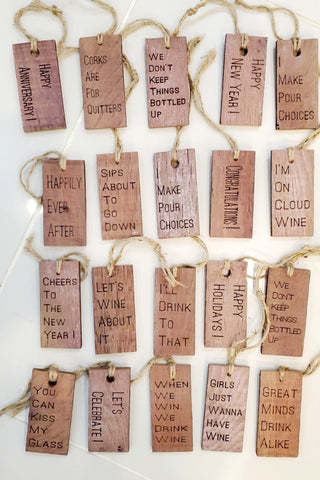 HAPPY
ANNIVERSARY!
CORKS
ARE
FOR
QUITTERS
WE
DON'T
KEEP
THINGS
BOTTLED
UP
HAPPY
NEW YEAR!
MAKE
POUR
CHOICES
HAPPILY
EVER
AFTER
SIPS
ABOUT
TO
GO
DOWN
MAKE
POUR
CHOICES
CONGRATULATIONS!
I'M
ON
CLOUD
WINE
CHEERS
TO
THE
NEW
YEAR!
LET'S
WINE
ABOUT
IT
I'LL
DRINK
TO
THAT
HAPPY
HOLIDAYS!
WE
DON'T
KEEP
THINGS
BOTTLED
UP
YOU
CAN
KISS
MY
GLASS
LET'S
CELEBRATE!
WHEN
WE
WIN,
WE
DRINK
WINE
GIRLS
JUST
WANNA
HAVE
WINE
GREAT
MINDS
DRINK
ALIKE